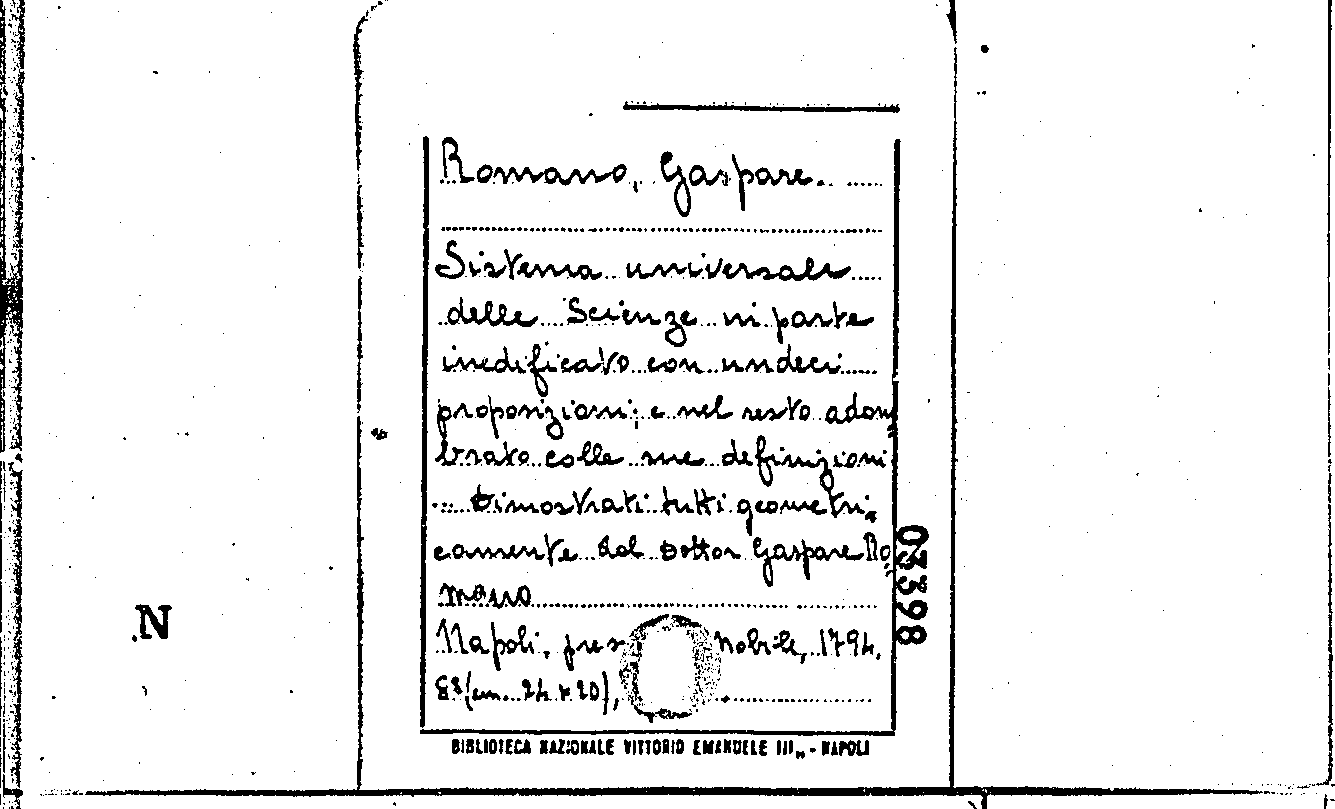 Romano, Gaspare.
Sistema universale
delle Scienze in parte
inedificato con undeci
proposizioni; e nel resto adom-
brato colle sue definizioni
... Dimostrati tutti geometri-
camente dal Dottor Gaspare Ro-
mano
Napoli, pres nobile, 1794.
8º (cm. 24 x 20),
BIBLIOTECA NAZIONALE VITTORIO EMANUELE III„ - NAPOLI
03398
N